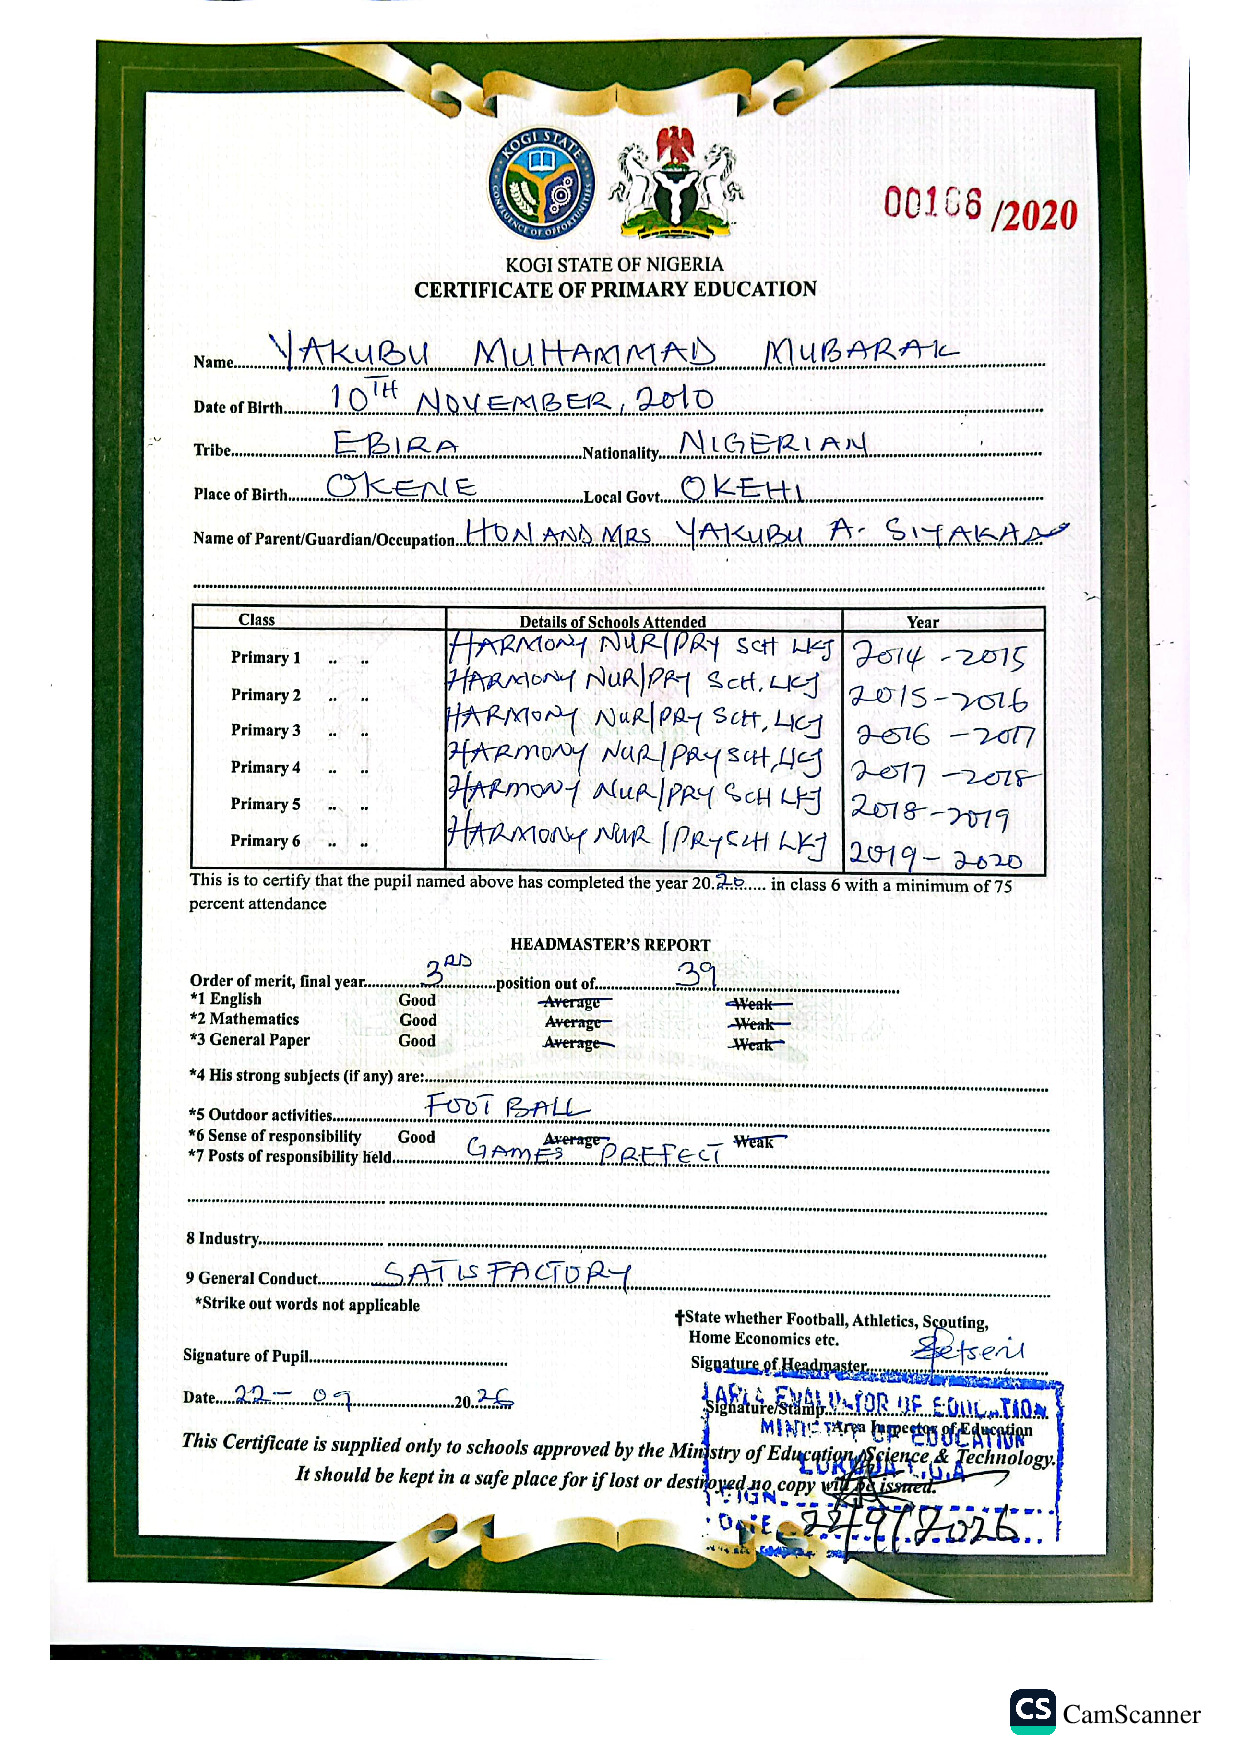 KOGI STATE
CONFLUENCE OF OPPORTUNITIES
00166 /2020
KOGI STATE OF NIGERIA
CERTIFICATE OF PRIMARY EDUCATION
Name YAKUBU MUHAMMAD MUBARAK
Date of Birth 10TH NOVEMBER, 2010
Tribe EBIRA Nationality NIGERIAN
Place of Birth OKENE Local Govt. OKEHI
Name of Parent/Guardian/Occupation HON AND MRS YAKUBU A. SIYAKA
Class Details of Schools Attended Year
Primary 1 .. .. HARMONY NUR/PRY SCH LKJ 2014 - 2015
Primary 2 .. .. HARMONY NUR/PRY SCH, LKJ 2015 - 2016
Primary 3 .. .. HARMONY NUR/PRY SCH, LKJ 2016 - 2017
Primary 4 .. .. HARMONY NUR/PRY SCH, LKJ 2017 - 2018
Primary 5 .. .. HARMONY NUR/PRY SCH LKJ 2018 - 2019
Primary 6 .. .. HARMONY NUR/PRY SCH LKJ 2019 - 2020
This is to certify that the pupil named above has completed the year 20.20 in class 6 with a minimum of 75
percent attendance
HEADMASTER'S REPORT
Order of merit, final year 3RD position out of 39
*1 English Good Average Weak
*2 Mathematics Good Average Weak
*3 General Paper Good Average Weak
*4 His strong subjects (if any) are:
*5 Outdoor activities FOOTBALL
*6 Sense of responsibility Good Average Weak
*7 Posts of responsibility held GAMES PREFECT
8 Industry
9 General Conduct SATISFACTORY
*Strike out words not applicable
†State whether Football, Athletics, Scouting,
Home Economics etc.
Signature of Pupil
Signature of Headmaster
Date 22 - 09 20.26
Signature/Stamp
Area Inspector of Education
EVALUATOR OF EDUCATION
MINISTRY OF EDUCATION
L.G.A
SIGN
DATE 22/9/2026
This Certificate is supplied only to schools approved by the Ministry of Education, Science & Technology.
It should be kept in a safe place for if lost or destroyed no copy will be issued.
CS CamScanner